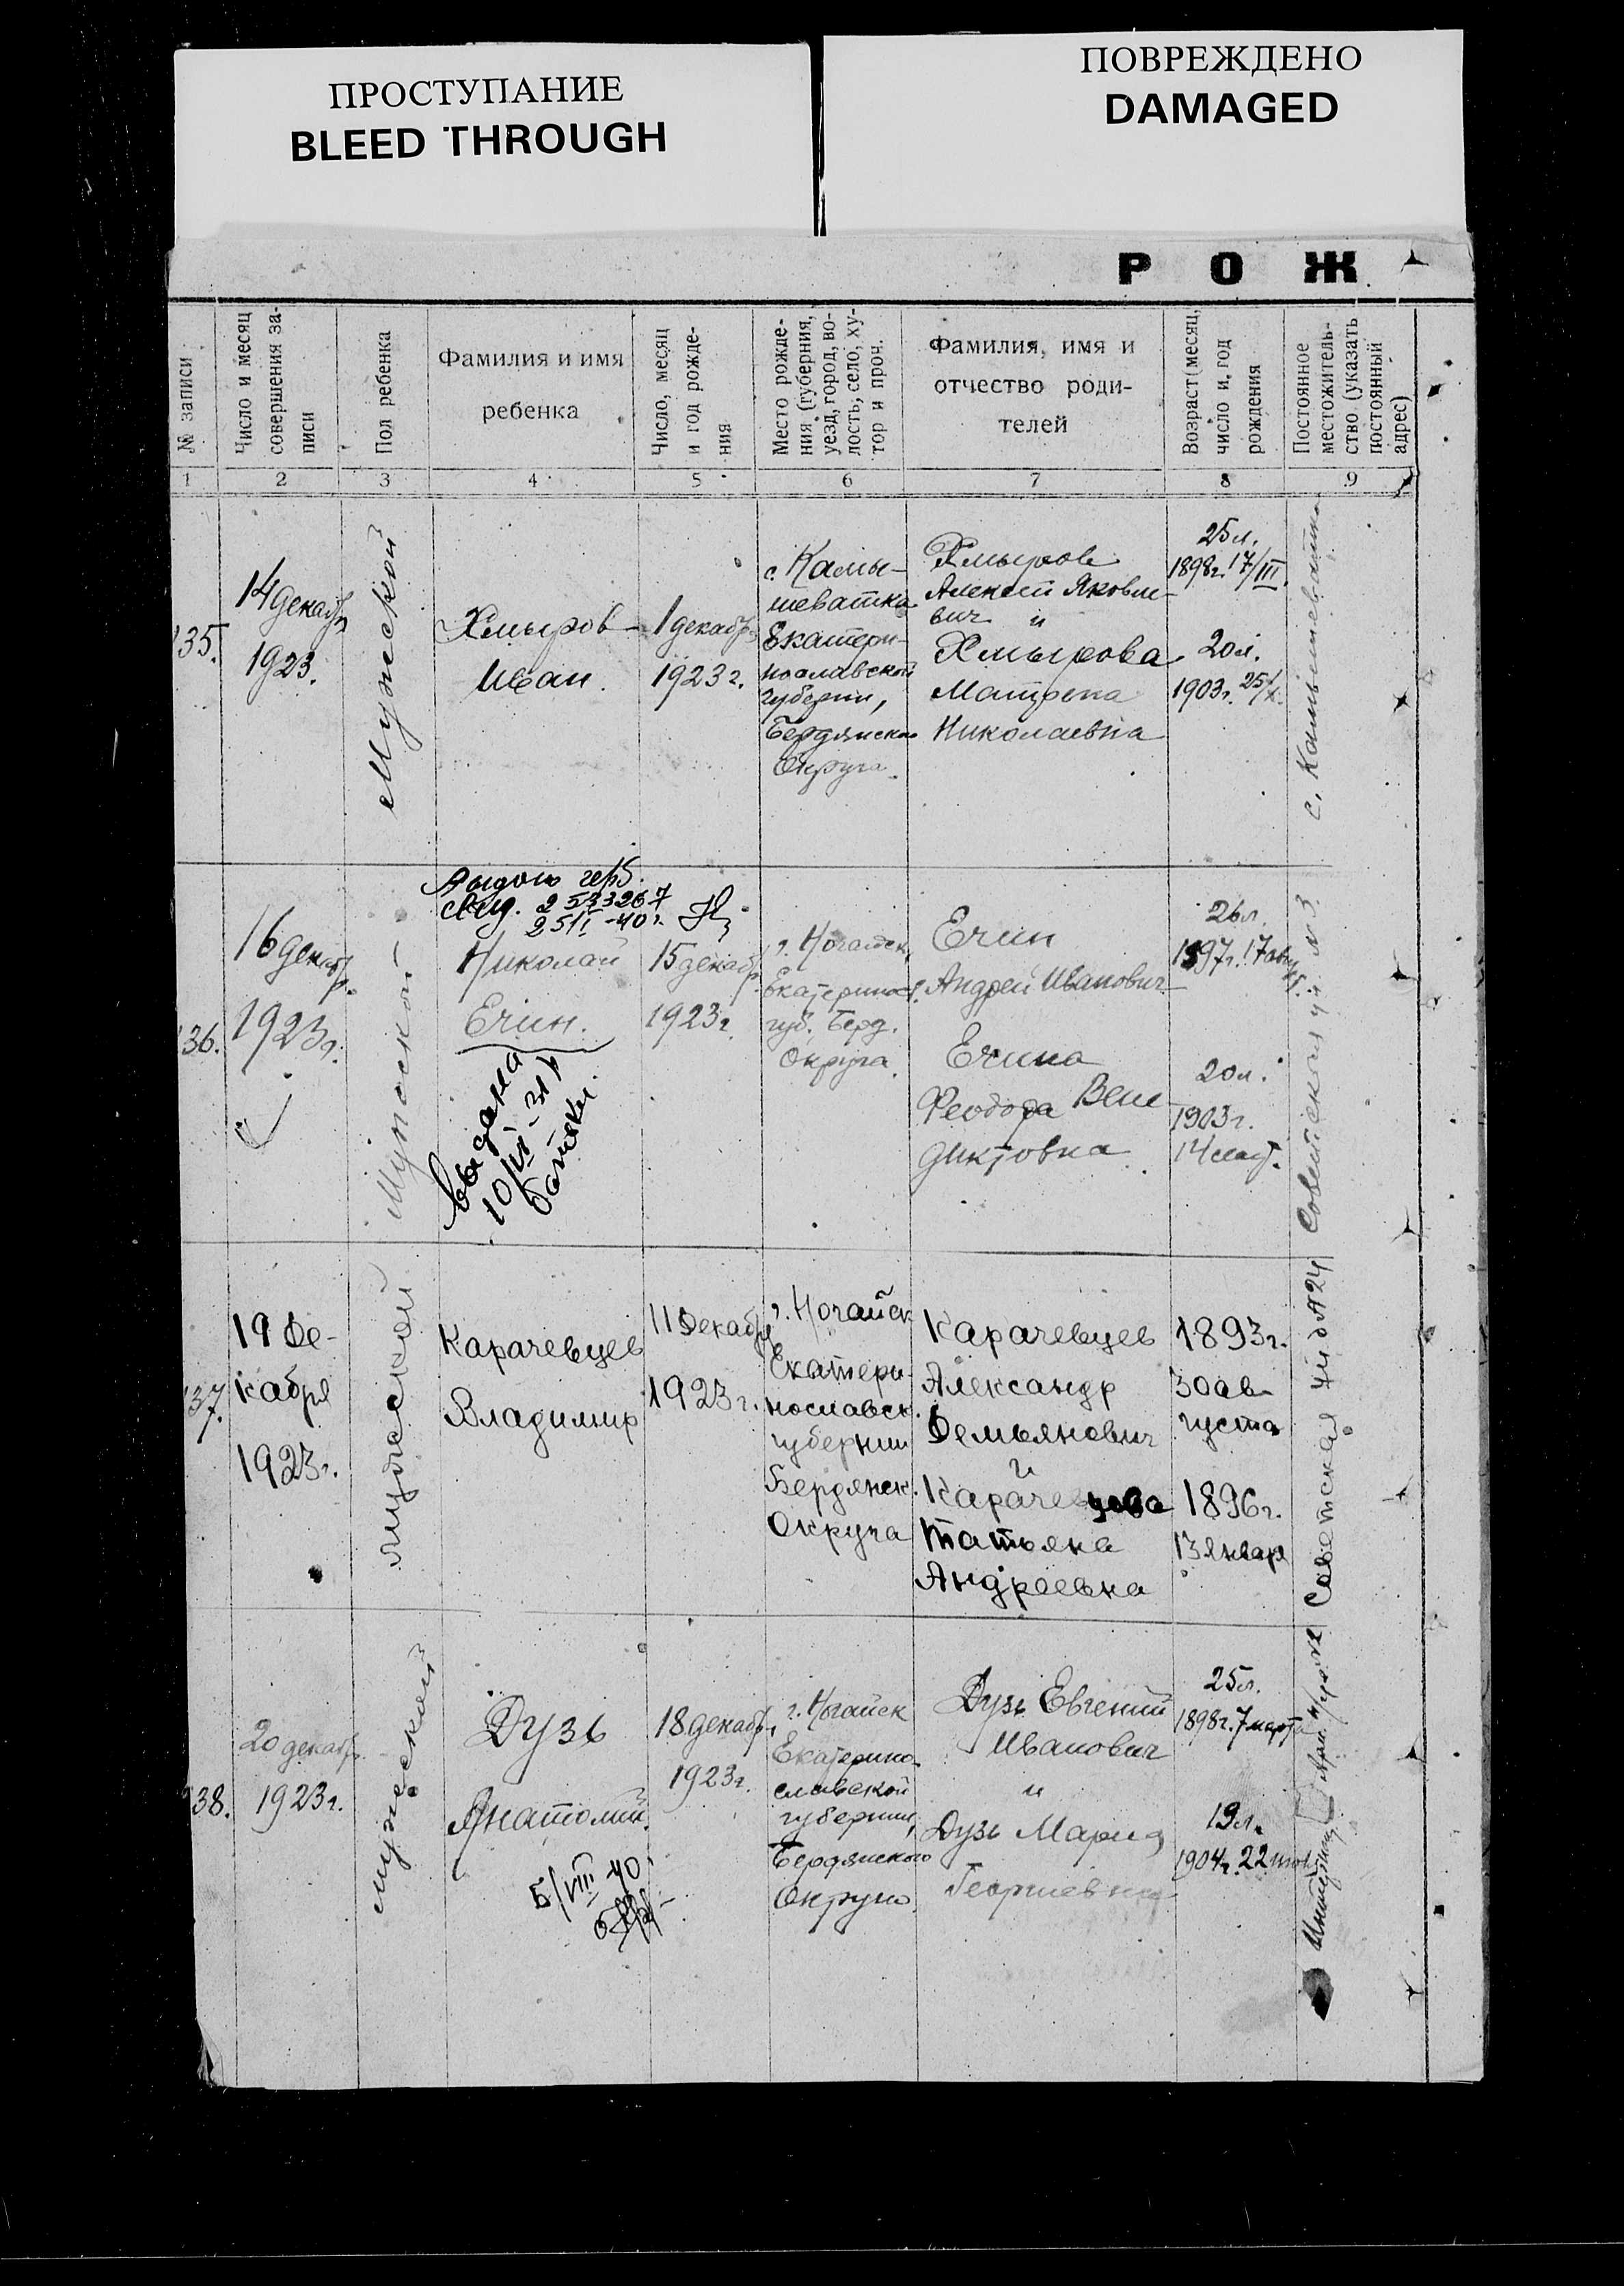 ПРОСТУПАНИЕ
BLEED THROUGH
ПОВРЕЖДЕНО
DAMAGED
Р О Ж
№ записи
Число и месяц
совершения за-
писи
Пол ребенка
Фамилия и имя
ребенка
Число, месяц
и год рожде-
ния
Место рожде-
ния (губерния,
уезд, город, во-
лость, село, ху-
тор и проч.
Фамилия, имя и
отчество роди-
телей
Возраст (месяц,
число и, год
рождения
Постоянное
местожитель-
ство (указать
постоянный
адрес)
1 2 3 4 5 6 7 8 9
35.
14 декабр
1923.
Мужской
Хмыров
Иван.
1 декабр
1923 г.
с. Камы-
шеватка
Екатери-
нославской
губерни,
Бердянско
Округа.
Хмыров
Алексей Яковле-
вич и
Хмырова
Матрена
Николаевна
25 л.
1898 г. 17/III.
20 л.
1903 г. 25/X.
с. Камышеватка
36.
16 декабр.
1923 г.
Мужской
Выдано герб.
свид. 2533267
40 г.
Николай
Ечин.
выдана
10/VI - 31 г
15 декабр.
1923 г.
г. Ногайск,
Екатеринос.
губ., Берд.
Округа.
Ечин
Андрей Иванович
Ечина
Феодора Вене-
диктовна
26 л.
1897 г. 17 авг
20 л.
1903 г.
Советская ул. № 3.
37.
19 де-
кабря
1923 г.
мужеской
Карачевцев
Владимир
11 декабр
1923 г.
г. Ногайск
Екатери-
нославск.
губернии
Бердянск.
Округа
Карачевцев
Александр
Демьянович
и
Карачевцева
Татьяна
Андреевна
1893 г.
30 ав-
густа
1896 г.
13 январ
Советская № 24
38.
20 декабр.
1923 г.
мужеской
Дузь
Анатолий.
5/VIII 40
18 декабр,
1923 г.
г. Ногайск
Екатерино-
славской
губернии,
Бердянского
Округа.
Дузь Евгений
Иванович
и
Дузь Мария
Георгиевна
25 л.
1898 г. 7 марта
19 л.
1904 г. 22